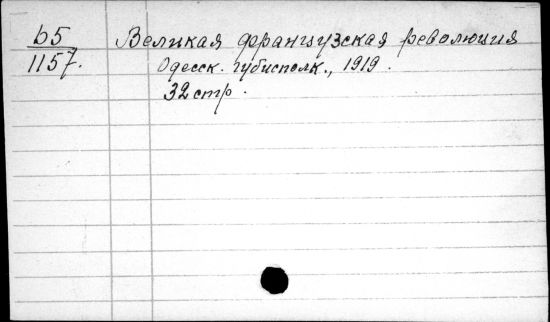 b5 Великая французская революция
1157. Одесск. губисполк., 1919.
32 стр.